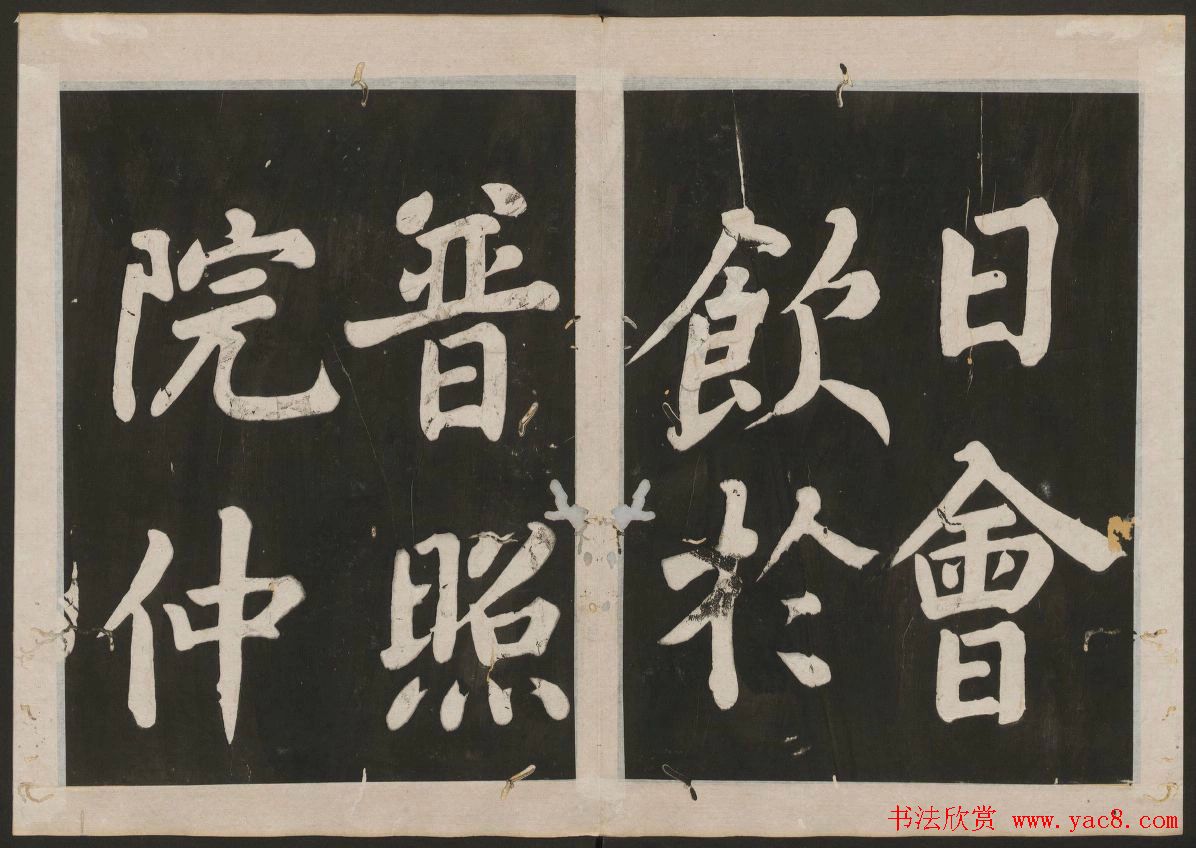 日會
飲於
普照
院仲
书法欣赏 www.yac8.com